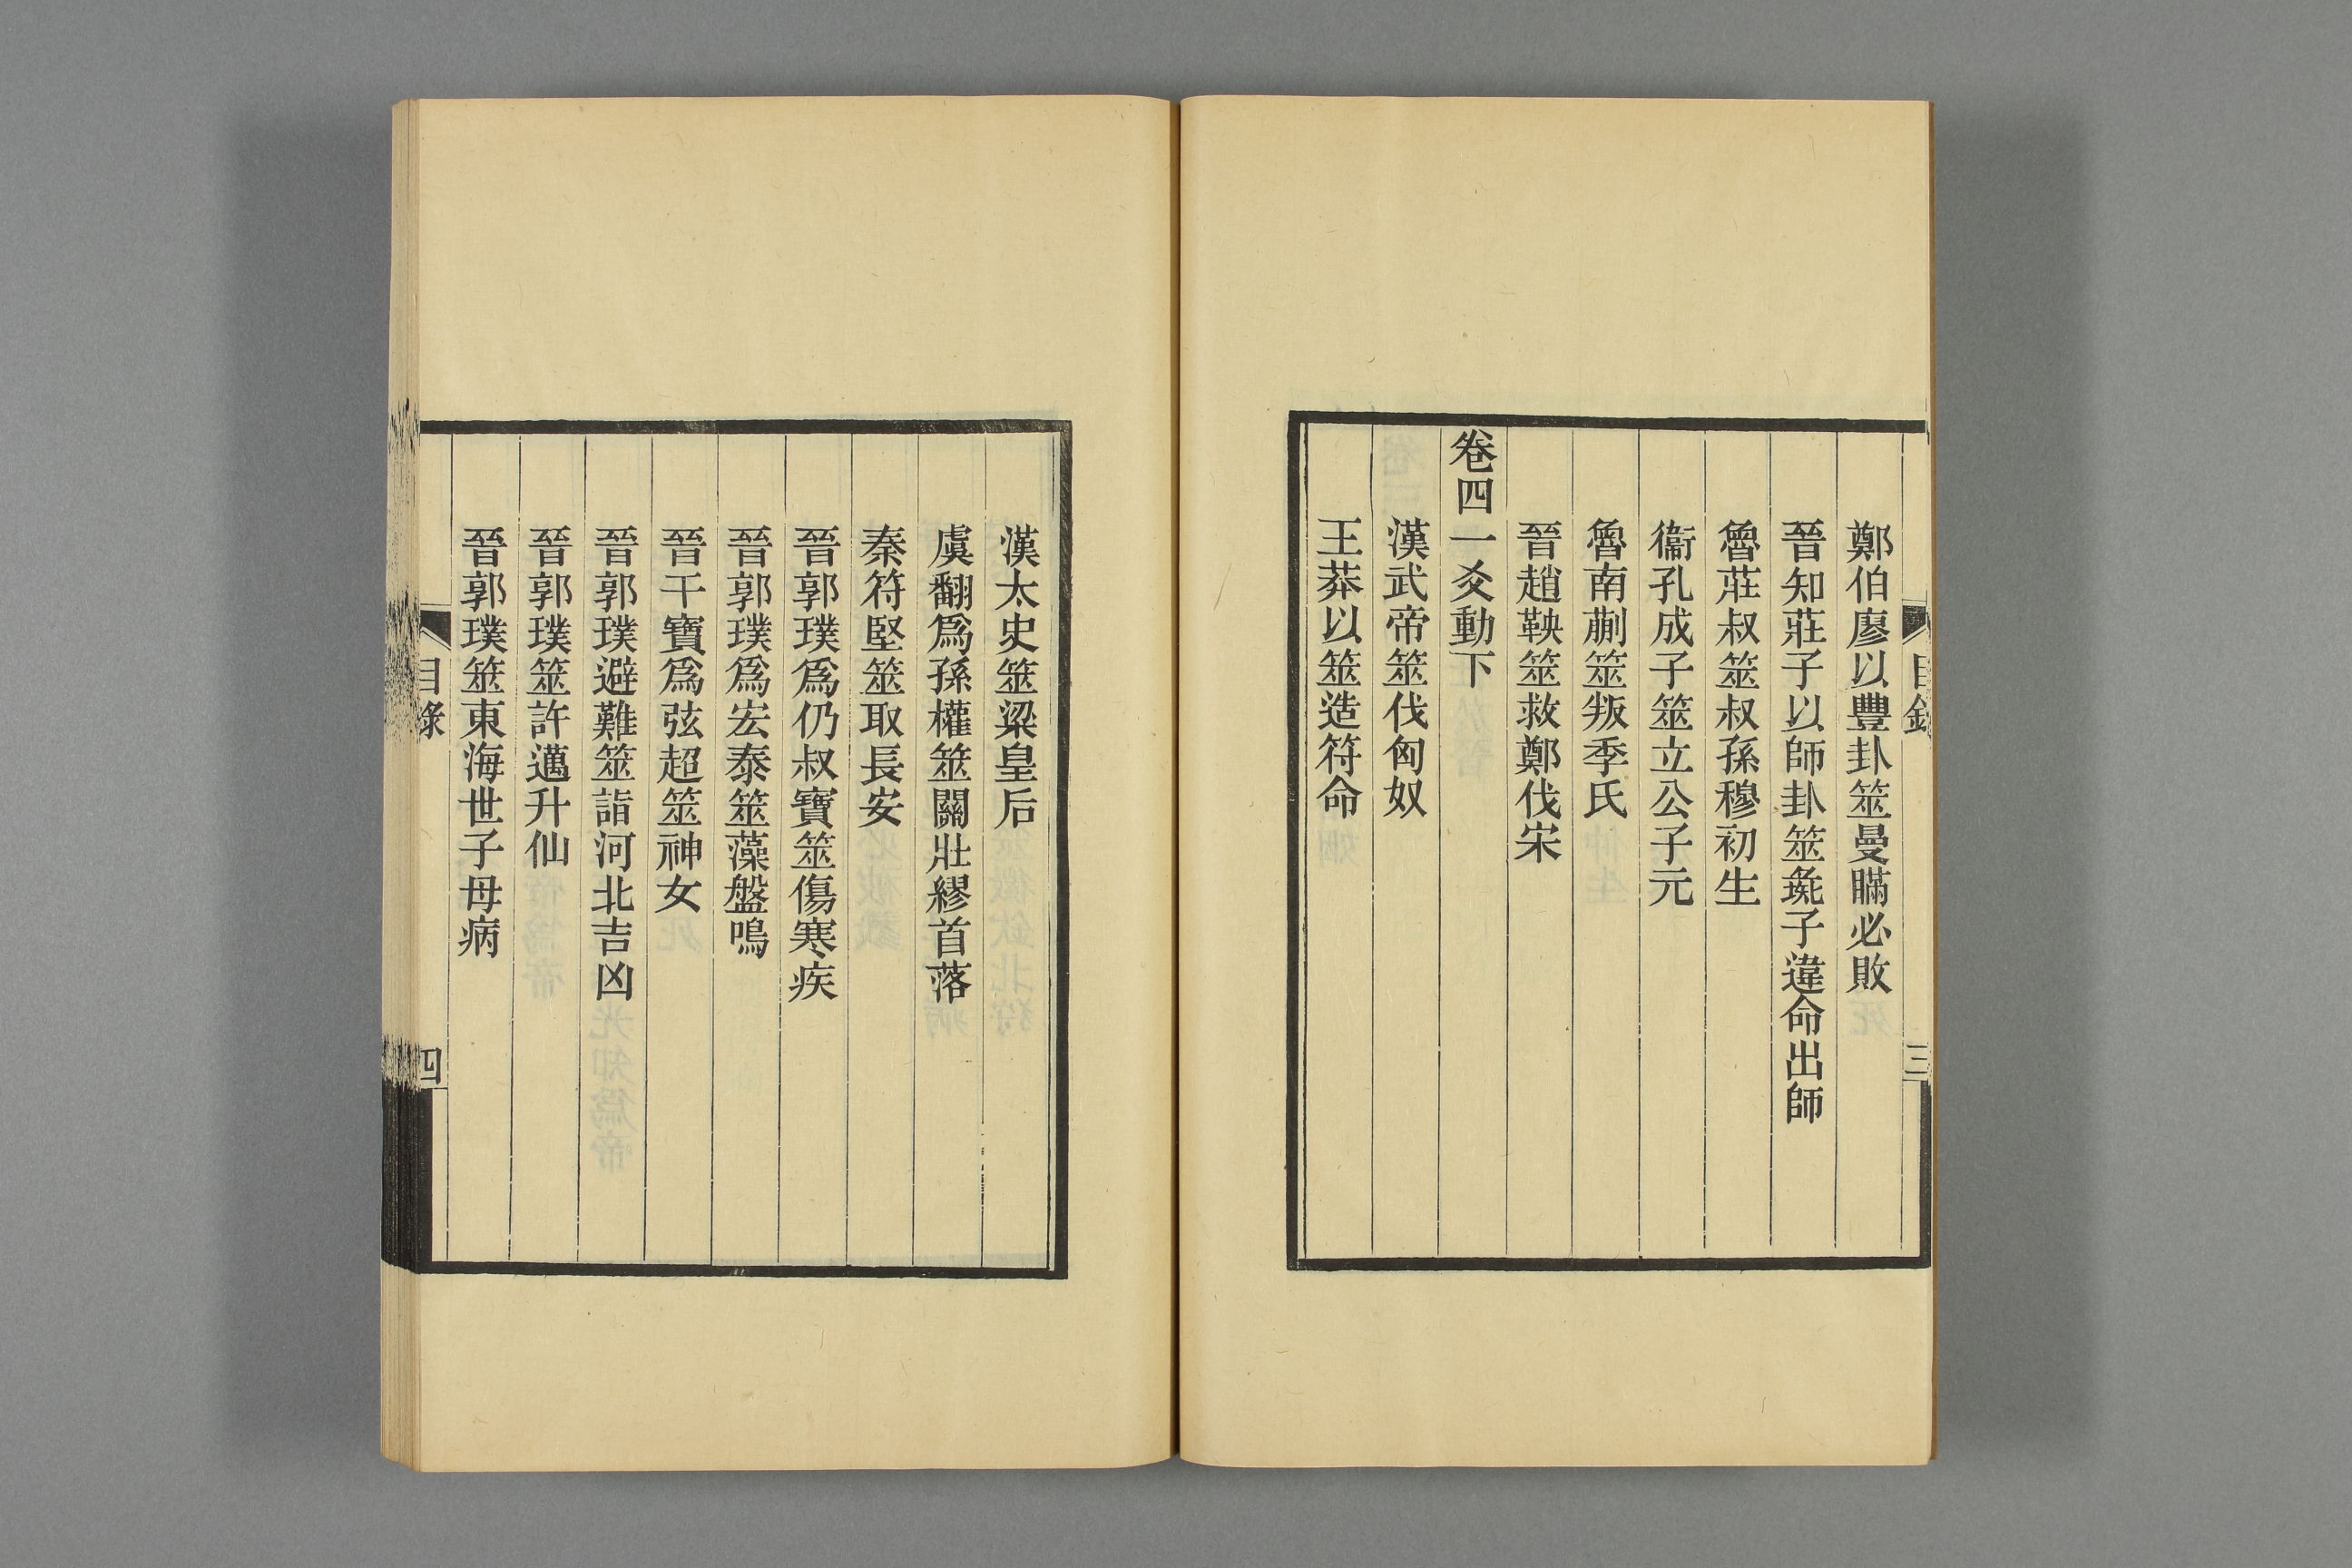 目錄
三
鄭伯廖以豐卦筮曼瞞必敗
晉知莊子以師卦筮彘子違命出師
魯莊叔筮叔孫穆初生
衞孔成子筮立公子元
魯南蒯筮叛季氏
晉趙鞅筮救鄭伐宋
卷四一爻動下
漢武帝筮伐匈奴
王莽以筮造符命
漢太史筮梁皇后
虞翻爲孫權筮關壯繆首落
秦符堅筮取長安
晉郭璞爲仍叔寶筮傷寒疾
晉郭璞爲宏泰筮藻盤鳴
晉干寶爲弦超筮神女
晉郭璞避難筮詣河北吉凶
晉郭璞筮許邁升仙
晉郭璞筮東海世子母病
目錄
四